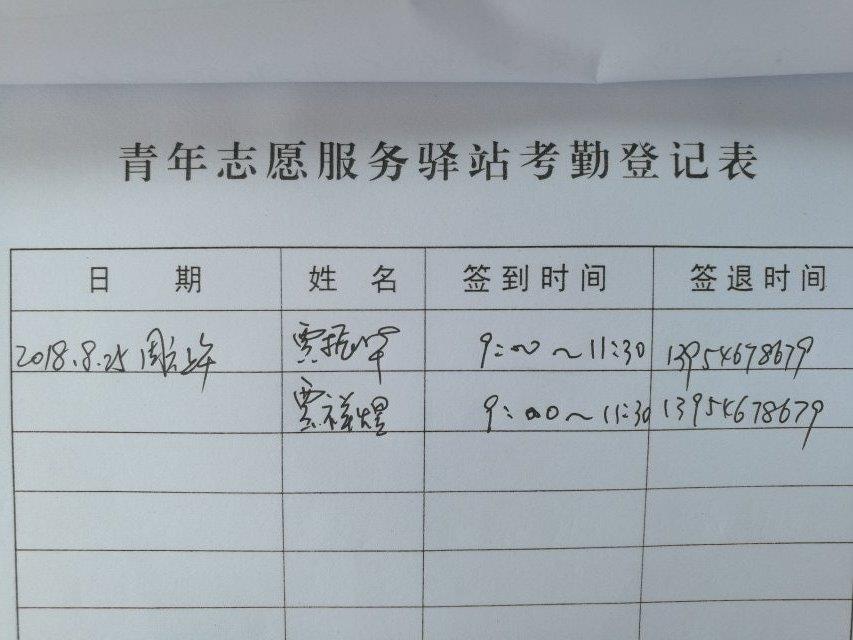 青年志愿服务驿站考勤登记表
日 期 姓 名 签到时间 签退时间
2018.8.25 周六上午 贾振华 9:00~11:30 13954678679
贾祥煜 9:00~11:30 13954678679